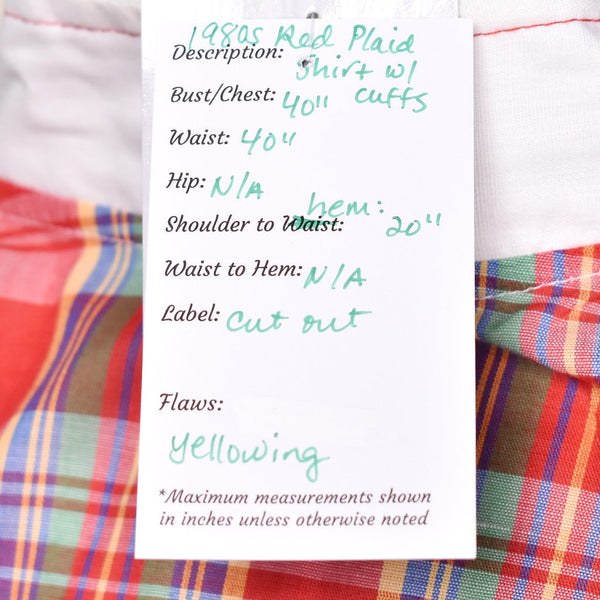 Description: 1980s Red Plaid
Shirt w/
Bust/Chest: 40" cuffs
Waist: 40"
Hip: N/A
hem:
Shoulder to Waist: 20"
Waist to Hem: N/A
Label: cut out
Flaws:
yellowing
*Maximum measurements shown
in inches unless otherwise noted